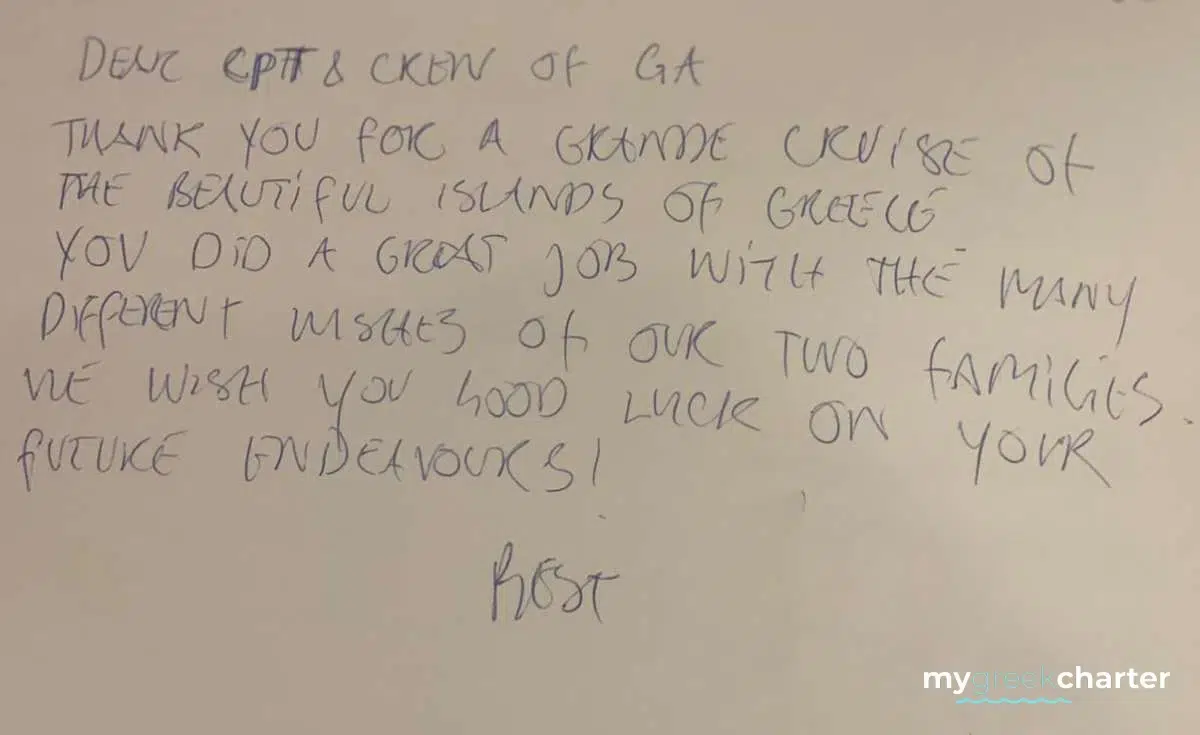 DEAR CPT & CREW OF GA
THANK YOU FOR A GRANDE CRUISE OF
THE BEAUTIFUL ISLANDS OF GREECE
YOU DID A GREAT JOB WITH THE MANY
DIFFERENT WISHES OF OUR TWO FAMILIES.
WE WISH YOU GOOD LUCK ON YOUR
FUTURE ENDEAVOURS!
BEST
mygreekcharter